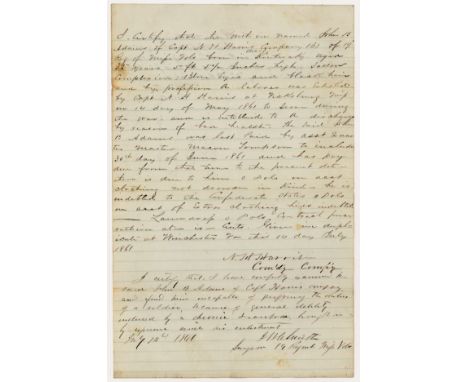 I Certify that the within named John B
Adams of Capt N H Harris Company (C) of 19
Reg of Miss Vols born in Kentucky aged
years 5 ft 5 1/2 inches high, Sallow
Complexion, Blue Eyes and Black hair
and by profession a laborer was Enlisted
by Capt N. H Harris at Vicksburg Miss
on 14 day of May 1861 to Serve during
the war and is entitled to a discharge
by reason of bad health. The said John
B Adams was last Paid by asst Quar
ter Master to include
30th day of June 1861 and has Pay
due from that time to the present date
there is due to him 0 Dols on acct
Clothing not drawn in Kind he is
indebted to the Confederate States 0 Dols
on acct of Extra Clothing
Laundress 0 Dols
Given in dupli
cate at Winchester Va this 14 day July
1861
N. H Harris
Comdg Comp'y
I certify, that I have carefully examined the
said John B Adams of Capt Harris company
and find him incapable of performing the duties
of a soldier, because of general debility
induced by a chronic brought on
by exposure since his enlistment
July 14th 1861
Surgeon 19 Regmt Miss Vols